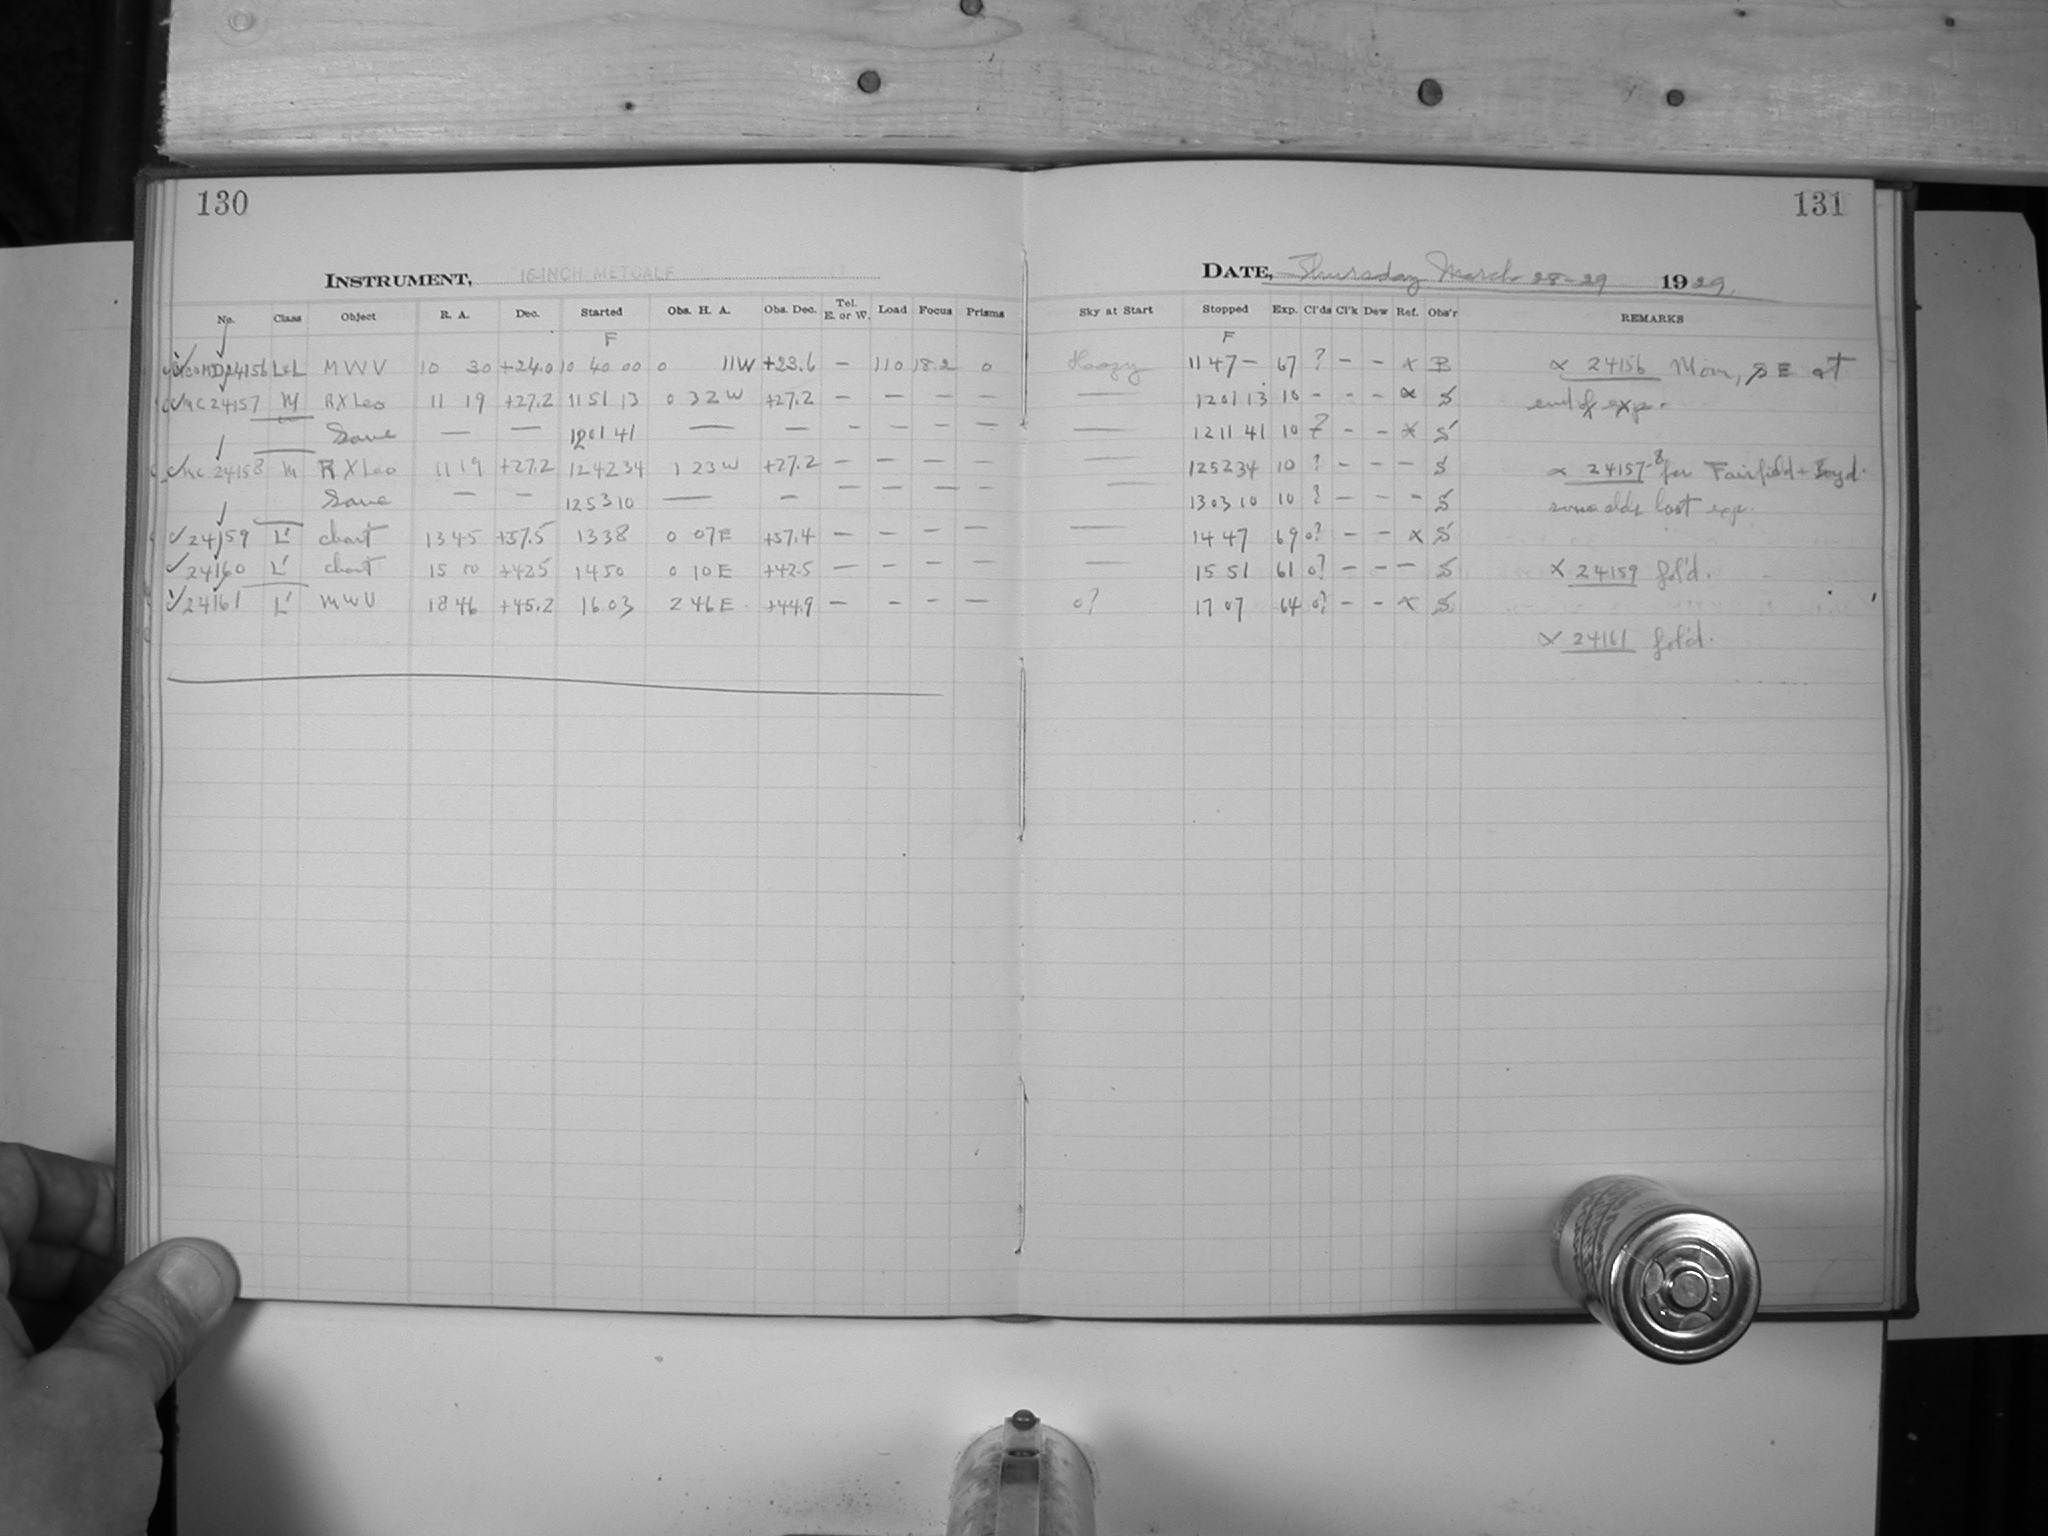 130
131
INSTRUMENT, 16-INCH METCALF
DATE, Thursday March 28-29 1929.
No. Class Object R. A. Dec. Started Obs. H. A. Obs. Dec. Tel. E. or W. Load Focus Prisms Sky at Start Stopped Exp. Cl'ds Cl'k Dew Ref. Obs'r REMARKS
F F
24156 L&L MWV 10 30 +24.0 10 40 00 0 11W +23.6 — 110 18.2 0 Hoazy 11 47 — 67 ? – – x B x 24156 Moon, SE at
MC 24157 M RX Leo 11 19 +27.2 11 51 13 0 32 W +27.2 – – – – — 12 01 13 10 - - - x S end of exp.
Same — — 12 01 41 — — – – – – — 12 11 41 10 ? - - x S
MC 24158 M RX Leo 11 19 +27.2 12 42 34 1 23 W +27.2 – – – – — 12 52 34 10 ? - - - S x 24157-8 for Fairfield + Boyd.
Same — – 12 53 10 — – – – – – — 13 03 10 10 ? - - - S some clds last exp.
24159 L' chart 13 45 +57.5 13 38 0 07 E +57.4 – – – – — 14 47 69 0? - - x S
24160 L' chart 15 00 +42.5 14 50 0 10 E +42.5 – – – – — 15 51 61 0? - - - S x 24159 fol'd.
24161 L' MWV 18 46 +45.2 16 03 2 46 E +44.9 – – – – 0? 17 07 64 0? - - x S
x 24161 fol'd.